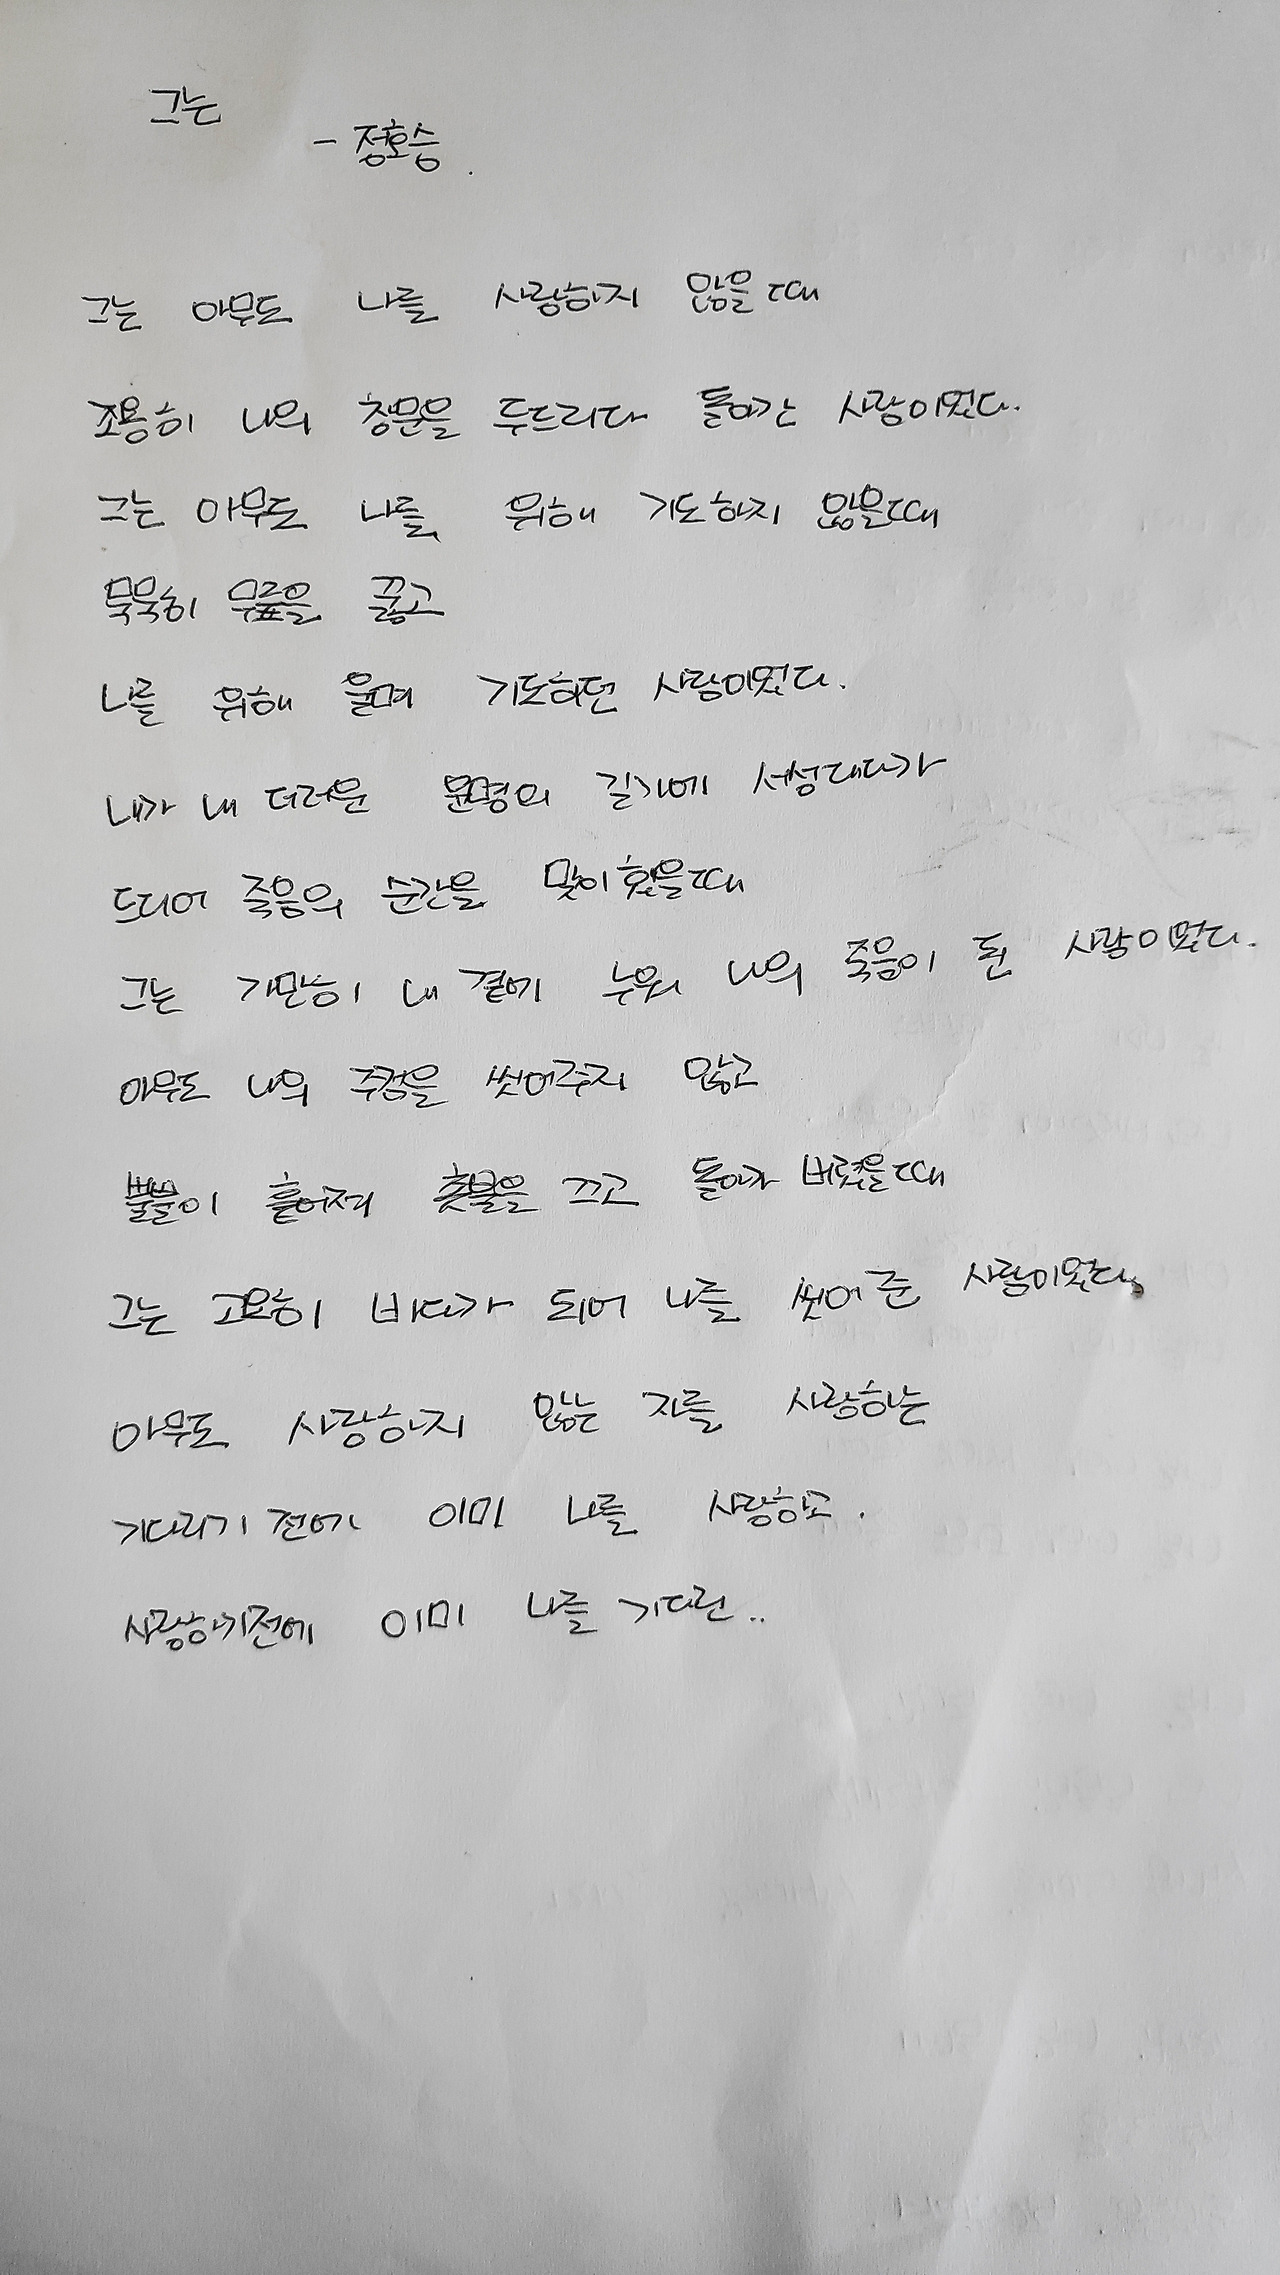 그는
- 정호승.
그는 아무도 나를 사랑하지 않을때
조용히 나의 창문을 두드리다 돌아간 사람이었다.
그는 아무도 나를 위해 기도하지 않을때
묵묵히 무릎을 꿇고
나를 위해 울며 기도하던 사람이었다.
내가 내 더러운 운명의 길가에 서성대다가
드디어 죽음의 순간을 맞이했을때
그는 가만히 내 곁에 누워 나의 죽음이 된 사람이었다.
아무도 나의 주검을 씻어주지 않고
뿔뿔이 흩어져 촛불을 끄고 돌아가 버렸을때
그는 고요히 바다가 되어 나를 씻어준 사람이었다.
아무도 사랑하지 않는 자를 사랑하는
기다리기 전에 이미 나를 사랑하고.
사랑하기전에 이미 나를 기다린..